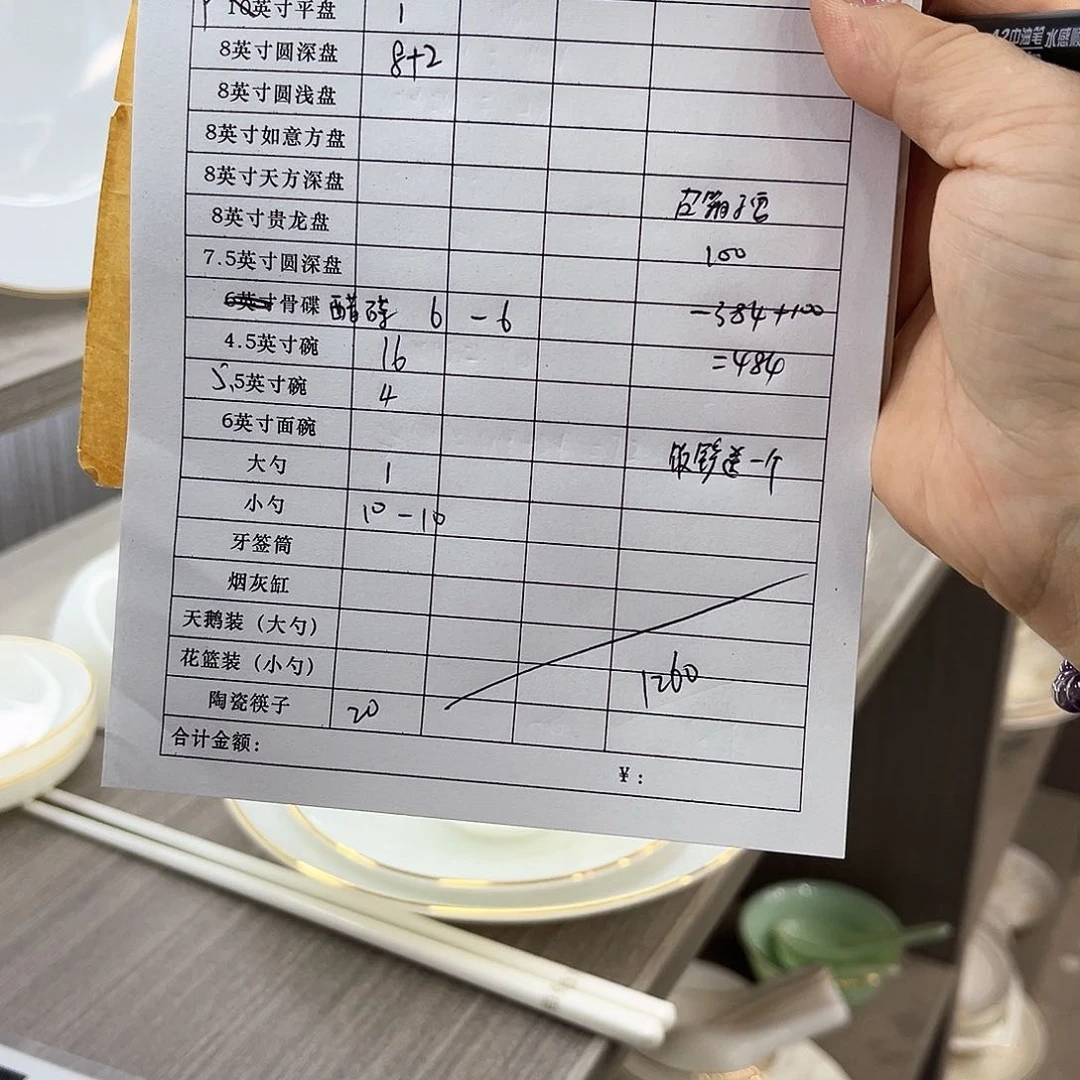 10英寸平盘 1
8英寸圆深盘 8+2
8英寸圆浅盘
8英寸如意方盘
8英寸天方深盘
8英寸贵龙盘
7.5英寸圆深盘 100
6英寸骨碟 醋碟 6 -6 -384+100
4.5英寸碗 16 =484
5.5英寸碗 4
6英寸面碗
饭锣送一个
大勺 1
小勺 10-10
牙签筒
烟灰缸
天鹅装（大勺）
花篮装（小勺） 1260
陶瓷筷子 20
合计金额：
¥：
中油笔 水感顺